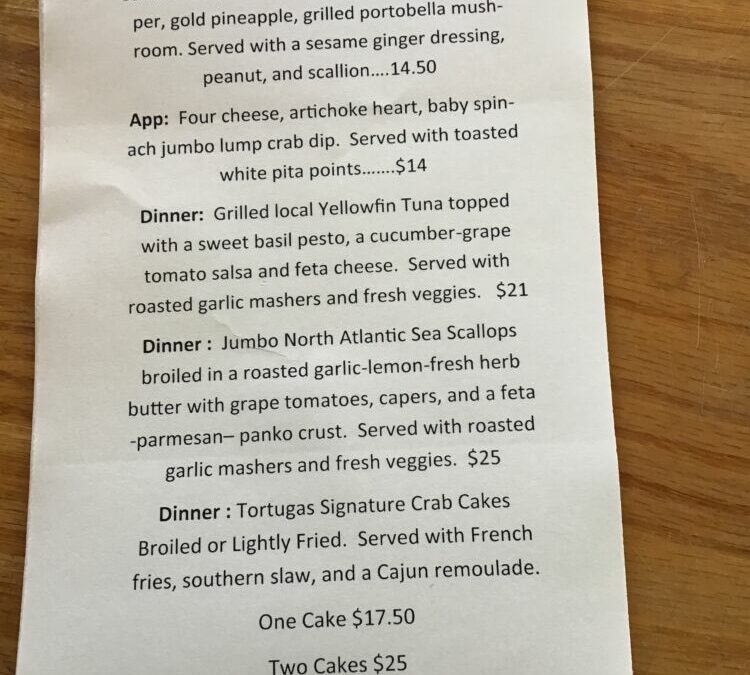 per, gold pineapple, grilled portobella mush-
room. Served with a sesame ginger dressing,
peanut, and scallion....14.50
App: Four cheese, artichoke heart, baby spin-
ach jumbo lump crab dip. Served with toasted
white pita points.......$14
Dinner: Grilled local Yellowfin Tuna topped
with a sweet basil pesto, a cucumber-grape
tomato salsa and feta cheese. Served with
roasted garlic mashers and fresh veggies. $21
Dinner : Jumbo North Atlantic Sea Scallops
broiled in a roasted garlic-lemon-fresh herb
butter with grape tomatoes, capers, and a feta
-parmesan– panko crust. Served with roasted
garlic mashers and fresh veggies. $25
Dinner : Tortugas Signature Crab Cakes
Broiled or Lightly Fried. Served with French
fries, southern slaw, and a Cajun remoulade.
One Cake $17.50
Two Cakes $25